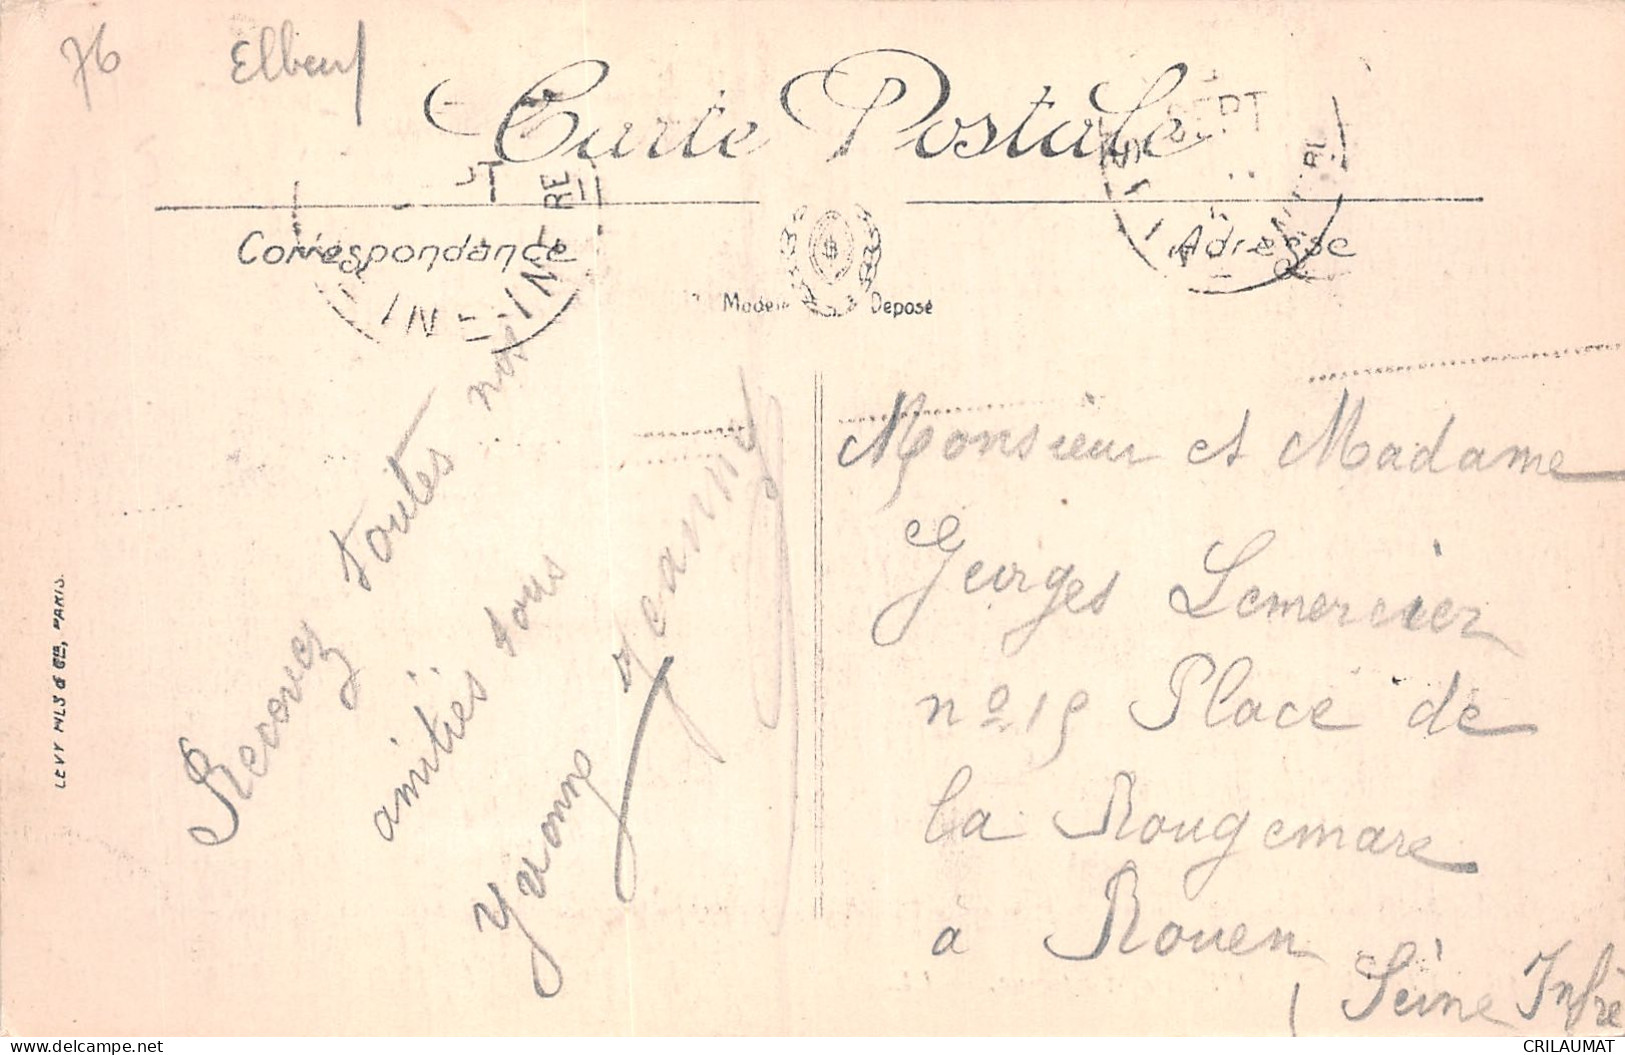 76 Elbeuf
Carte Postale
SEPT
Correspondance
Adresse
Modele Déposé
Recevez toutes nos
amitiés tous
Yvonne Jeanny
Monsieur et Madame
Georges Lemercier
nº 19 Place de
la Rougemare
à Rouen
(Seine Infre
LEVY FILS & Cie, PARIS.
CRILAUMAT